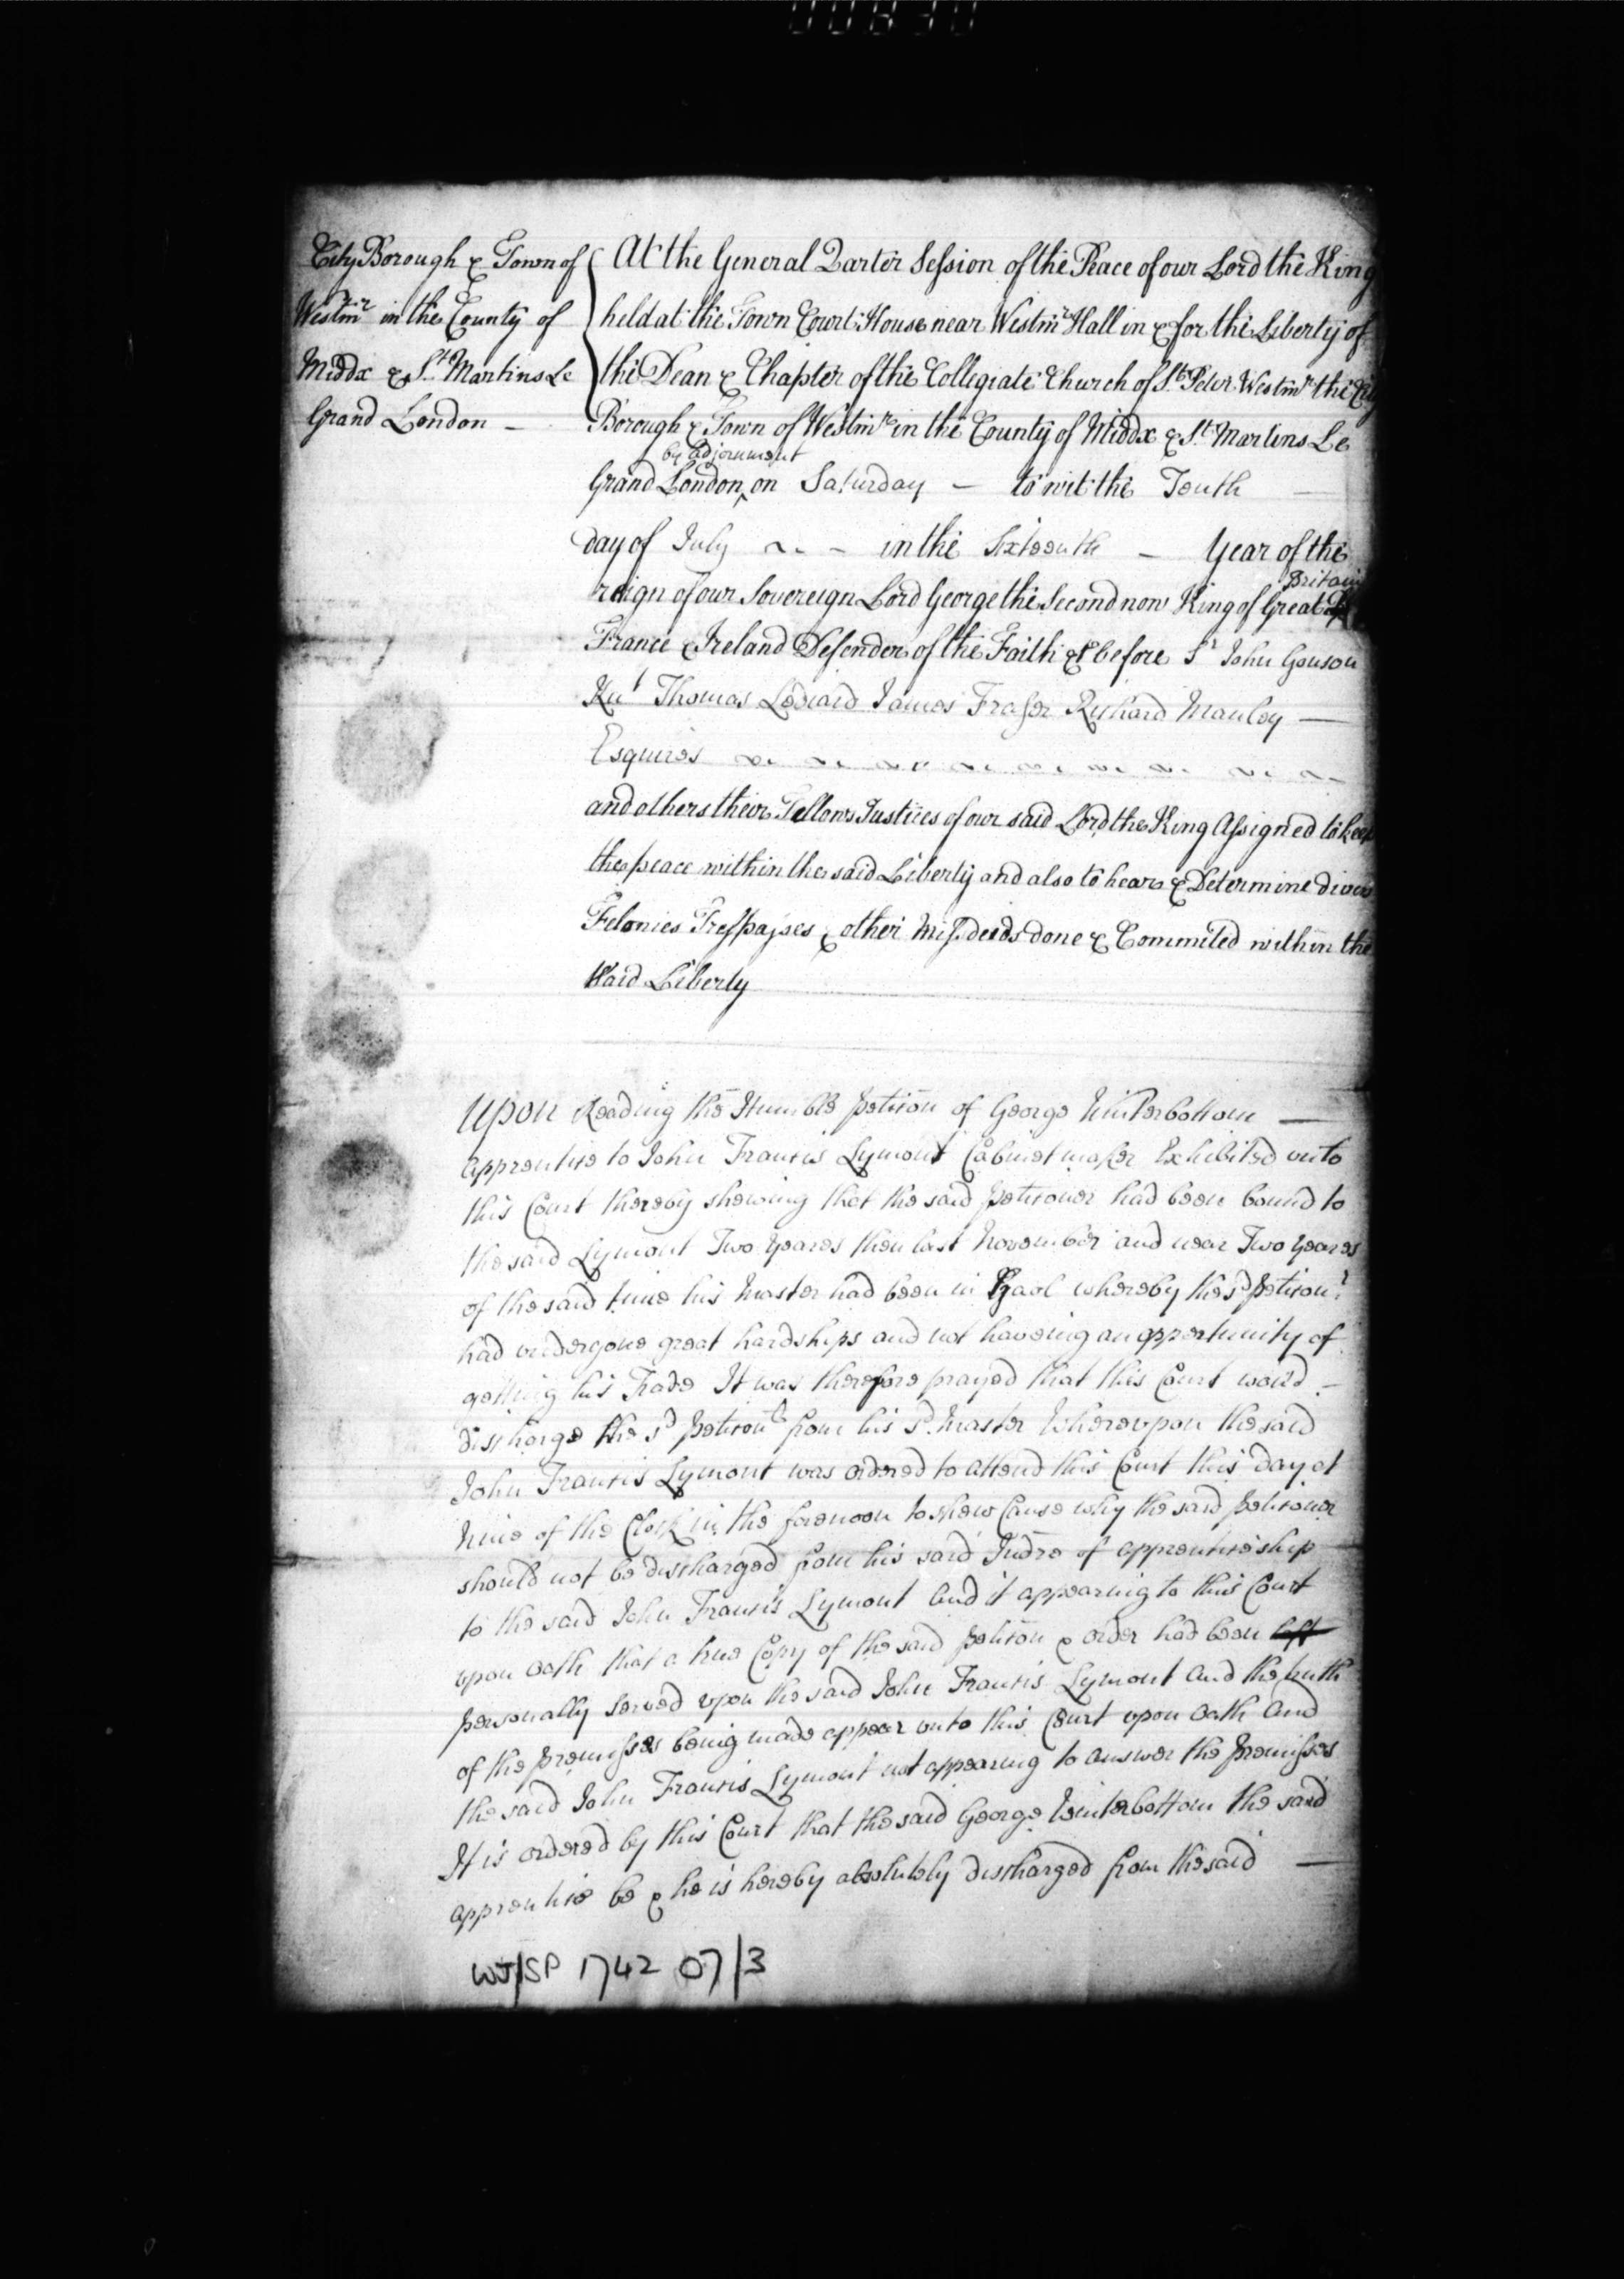 00830
City Borough & Town of
Westmr in the County of
Middx & St. Martins Le
Grand London -
At the General Qarter Session of the Peace of our Lord the King
held at the Town Court House near Westmr Hall in & for the Liberty of
the Dean & Chapter of the Collegiate Church of St. Peter Westmr the City
Borough & Town of Westmr in the County of Middx & St. Martins Le
by Adjornment
Grand London ^ on Saturday - to wit the Tenth
day of July - in the Sixteenth - Year of the
Britain
reign of our Sovereign Lord George the Second now King of Great
France & Ireland Defender of the Faith &c before Sr John Gonson
Knt Thomas Lediard James Fraser Richard Manley -
Esquires
and others their Fellows Justices of our said Lord the King Assigned to keep
the peace within the said Liberty and also to hear & Determine divers
Felonies Trespasses & other Misdeeds done & Commited within the
said Liberty
Upon Reading the Humble Petition of George Winterbottom -
Apprentice to John Francis Lymont Cabinet maker Exhibited unto
this Court thereby shewing that the said Petitioner had been bound to
the said Lymont Two Yeares then last November and near Two Yeares
of the said time his Master had been in Gaol whereby the sd Petitionr
had undergone great hardships and not haveing an oppertunity of
getting his Trade It was therefore prayed that this Court would -
discharge the sd Petitionr from his sd. Master Whereupon the said
John Francis Lymont was ordered to attend this Court this day at
Nine of the Clock in the forenoon to shew Cause why the said Petitioner
should not be discharged from his said Indre of apprenticeship
to the said John Francis Lymont And it appearing to this Court
upon oath that a true Copy of the said Petition & order had been left
personally served upon the said John Francis Lymont and the truth
of the premisses being made appear unto this Court upon oath And
the said John Francis Lymont not appearing to answer the premisses
It is ordered by this Court that the said George Winterbottom the said
apprentice be & he is hereby absolutely discharged from the said -
WJ/SP 1742 07/3